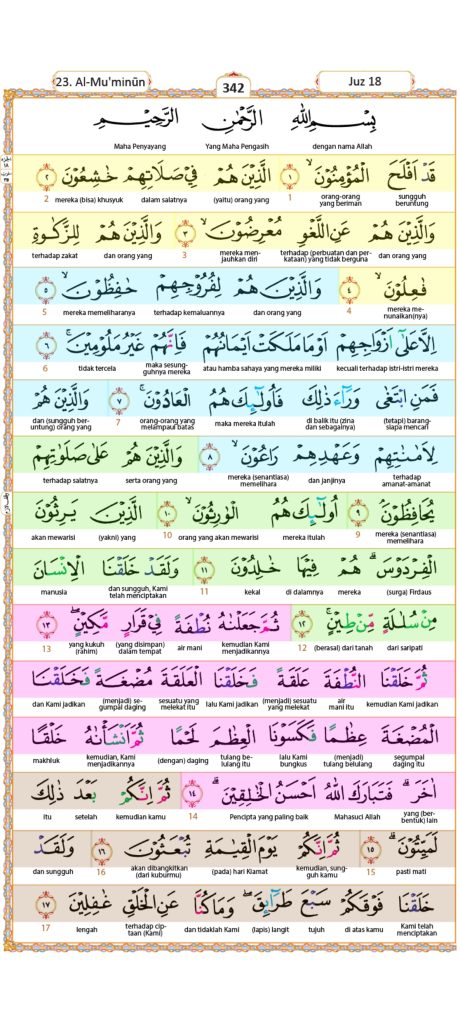 23. Al-Mu'minūn
342
Juz 18
بِسْمِ اللّٰهِ الرَّحْمٰنِ الرَّحِيْمِ
dengan nama Allah Yang Maha Pengasih Maha Penyayang
قَدْ اَفْلَحَ الْمُؤْمِنُوْنَ ۙ ١ الَّذِيْنَ هُمْ فِيْ صَلَاتِهِمْ خٰشِعُوْنَ ٢
sungguh beruntung orang-orang yang beriman 1 (yaitu) orang yang dalam salatnya mereka (bisa) khusyuk 2
وَالَّذِيْنَ هُمْ عَنِ اللَّغْوِ مُعْرِضُوْنَ ۙ ٣ وَالَّذِيْنَ هُمْ لِلزَّكٰوةِ
dan orang yang terhadap (perbuatan dan perkataan) yang tidak berguna mereka menjauhkan diri 3 dan orang yang terhadap zakat
فٰعِلُوْنَ ۙ ٤ وَالَّذِيْنَ هُمْ لِفُرُوْجِهِمْ حٰفِظُوْنَ ۙ ٥
mereka menunaikan(nya) 4 dan orang yang terhadap kemaluannya mereka memeliharanya 5
اِلَّا عَلٰٓى اَزْوَاجِهِمْ اَوْ مَا مَلَكَتْ اَيْمَانُهُمْ فَاِنَّهُمْ غَيْرُ مَلُوْمِيْنَ ۚ ٦
kecuali terhadap istri-istri mereka atau hamba sahaya yang mereka miliki maka sesungguhnya mereka tidak tercela 6
فَمَنِ ابْتَغٰى وَرَاۤءَ ذٰلِكَ فَاُولٰۤىِٕكَ هُمُ الْعَادُوْنَ ۚ ٧ وَالَّذِيْنَ هُمْ
(tetapi) barangsiapa mencari di balik itu (zina dan sebagainya) maka mereka itulah orang-orang yang melampaui batas 7 dan (sungguh beruntung) orang yang
لِاَمٰنٰتِهِمْ وَعَهْدِهِمْ رَاعُوْنَ ۙ ٨ وَالَّذِيْنَ هُمْ عَلٰى صَلَوٰتِهِمْ
terhadap amanat-amanat dan janjinya mereka (senantiasa) memelihara 8 serta orang yang terhadap salatnya
يُحَافِظُوْنَ ۘ ٩ اُولٰۤىِٕكَ هُمُ الْوٰرِثُوْنَ ۙ ١٠ الَّذِيْنَ يَرِثُوْنَ
mereka (senantiasa) memelihara 9 mereka itulah orang yang akan mewarisi 10 (yakni) yang akan mewarisi
الْفِرْدَوْسَ ۗ هُمْ فِيْهَا خٰلِدُوْنَ ١١ وَلَقَدْ خَلَقْنَا الْاِنْسَانَ
(surga) Firdaus mereka di dalamnya kekal 11 dan sungguh, Kami telah menciptakan manusia
مِنْ سُلٰلَةٍ مِّنْ طِيْنٍ ۚ ١٢ ثُمَّ جَعَلْنٰهُ نُطْفَةً فِيْ قَرَارٍ مَّكِيْنٍ ۖ ١٣
dari saripati (berasal) dari tanah 12 kemudian Kami menjadikannya air mani (yang disimpan) dalam tempat yang kukuh (rahim) 13
ثُمَّ خَلَقْنَا النُّطْفَةَ عَلَقَةً فَخَلَقْنَا الْعَلَقَةَ مُضْغَةً فَخَلَقْنَا
kemudian Kami jadikan air mani itu (menjadi) sesuatu yang melekat lalu Kami jadikan sesuatu yang melekat itu (menjadi) segumpal daging dan Kami jadikan
الْمُضْغَةَ عِظٰمًا فَكَسَوْنَا الْعِظٰمَ لَحْمًا ثُمَّ اَنْشَأْنٰهُ خَلْقًا
segumpal daging itu (menjadi) tulang belulang lalu Kami bungkus tulang belulang itu (dengan) daging kemudian, Kami menjadikannya makhluk
اٰخَرَ ۗ فَتَبَارَكَ اللّٰهُ اَحْسَنُ الْخٰلِقِيْنَ ۗ ١٤ ثُمَّ اِنَّكُمْ بَعْدَ ذٰلِكَ
yang (berbentuk) lain Mahasuci Allah Pencipta yang paling baik 14 kemudian kamu setelah itu
لَمَيِّتُوْنَ ۗ ١٥ ثُمَّ اِنَّكُمْ يَوْمَ الْقِيٰمَةِ تُبْعَثُوْنَ ١٦ وَلَقَدْ
pasti mati 15 kemudian, sungguh kamu (pada) hari Kiamat akan dibangkitkan (dari kuburmu) 16 dan sungguh
خَلَقْنَا فَوْقَكُمْ سَبْعَ طَرَاۤىِٕقَ ۖ وَمَا كُنَّا عَنِ الْخَلْقِ غٰفِلِيْنَ ١٧
Kami telah menciptakan di atas kamu tujuh (lapis) langit dan tidaklah Kami terhadap ciptaan (Kami) lengah 17